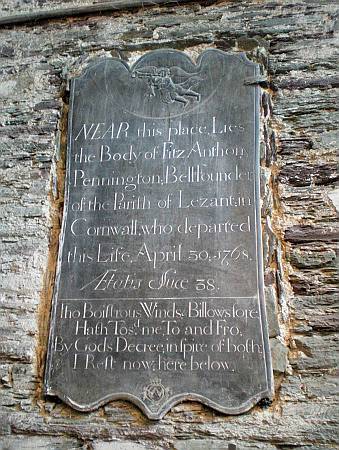 NEAR this place, Lies
the Body of Fitz Anthony
Pennington, Bellfounder
of the Parish of Lezant, in
Cornwall, who departed
this Life, April 30, 1768.
Ætatis Suæ 38.
Tho Boistrous Winds, Billows sore
Hath Tos'd me, To and Fro,
By Gods Decree, in spite of both
I Rest now, here below,